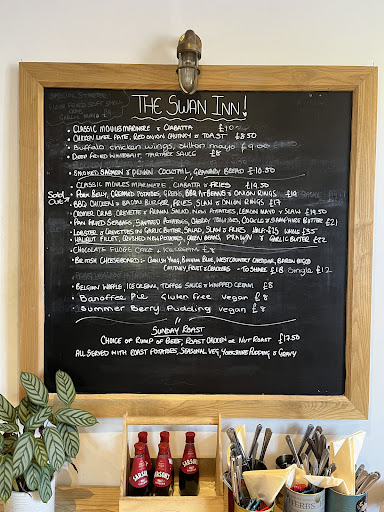 THE SWAN INN!
• CLASSIC MOULES MARINIERE & CIABATTA £10
• CHICKEN LIVER PATE, RED ONION CHUTNEY & TOAST £8.50
• Buffalo chicken wings, stilton mayo £9.00
• DEEP FRIED WHITEBAIT, TARTARE SAUCE £8
• SMOKED SALMON & PRAWN COCKTAIL, GRANARY BREAD £10.50
• CLASSIC MOULES MARINIERE CIABATTA & FRIES £19.50
Sold Out
• PORK BELLY, CREAMED POTATOES, GREENS, BBQ BEANS & ONION RINGS £18
• BBQ CHICKEN & BACON BURGER, FRIES, SLAW & ONION RINGS £17
• CROMER CRAB, CREVETTE & PRAWN SALAD, NEW POTATOES, LEMON MAYO & SLAW £19.50
• PAN FRIED SEABASS, SAUTEED POTATOES, CHERRY TOMATOES, & SAMPHIRE BUTTER £21
• LOBSTER & CREVETTES IN GARLIC BUTTER, SALAD, SLAW & FRIES. HALF £25 WHOLE £35
• HALIBUT FILLET, CRUSHED NEW POTATOES, GREEN BEANS, PRAWN & GARLIC BUTTER £22
• CHOCOLATE FUDGE CAKE & ICE CREAM £8
• BRITISH CHEESEBOARD:- CORNISH YARG, BINHAM BLUE, WEST COUNTRY CHEDDAR, BARON BIGOD
CHUTNEY, FRUIT & CRACKERS - TO SHARE £18 Single £12
• BELGIAN WAFFLE, ICE CREAM, TOFFEE SAUCE & WHIPPED CREAM £8
• Banoffee Pie Gluten free vegan £8
• Summer Berry Pudding vegan £8
SUNDAY ROAST
CHOICE OF RUMP OF BEEF, ROAST CHICKEN OR NUT ROAST £17.50
ALL SERVED WITH ROAST POTATOES, SEASONAL VEG, YORKSHIRE PUDDING & GRAVY
SARSON'S
SARSON'S
HERBS